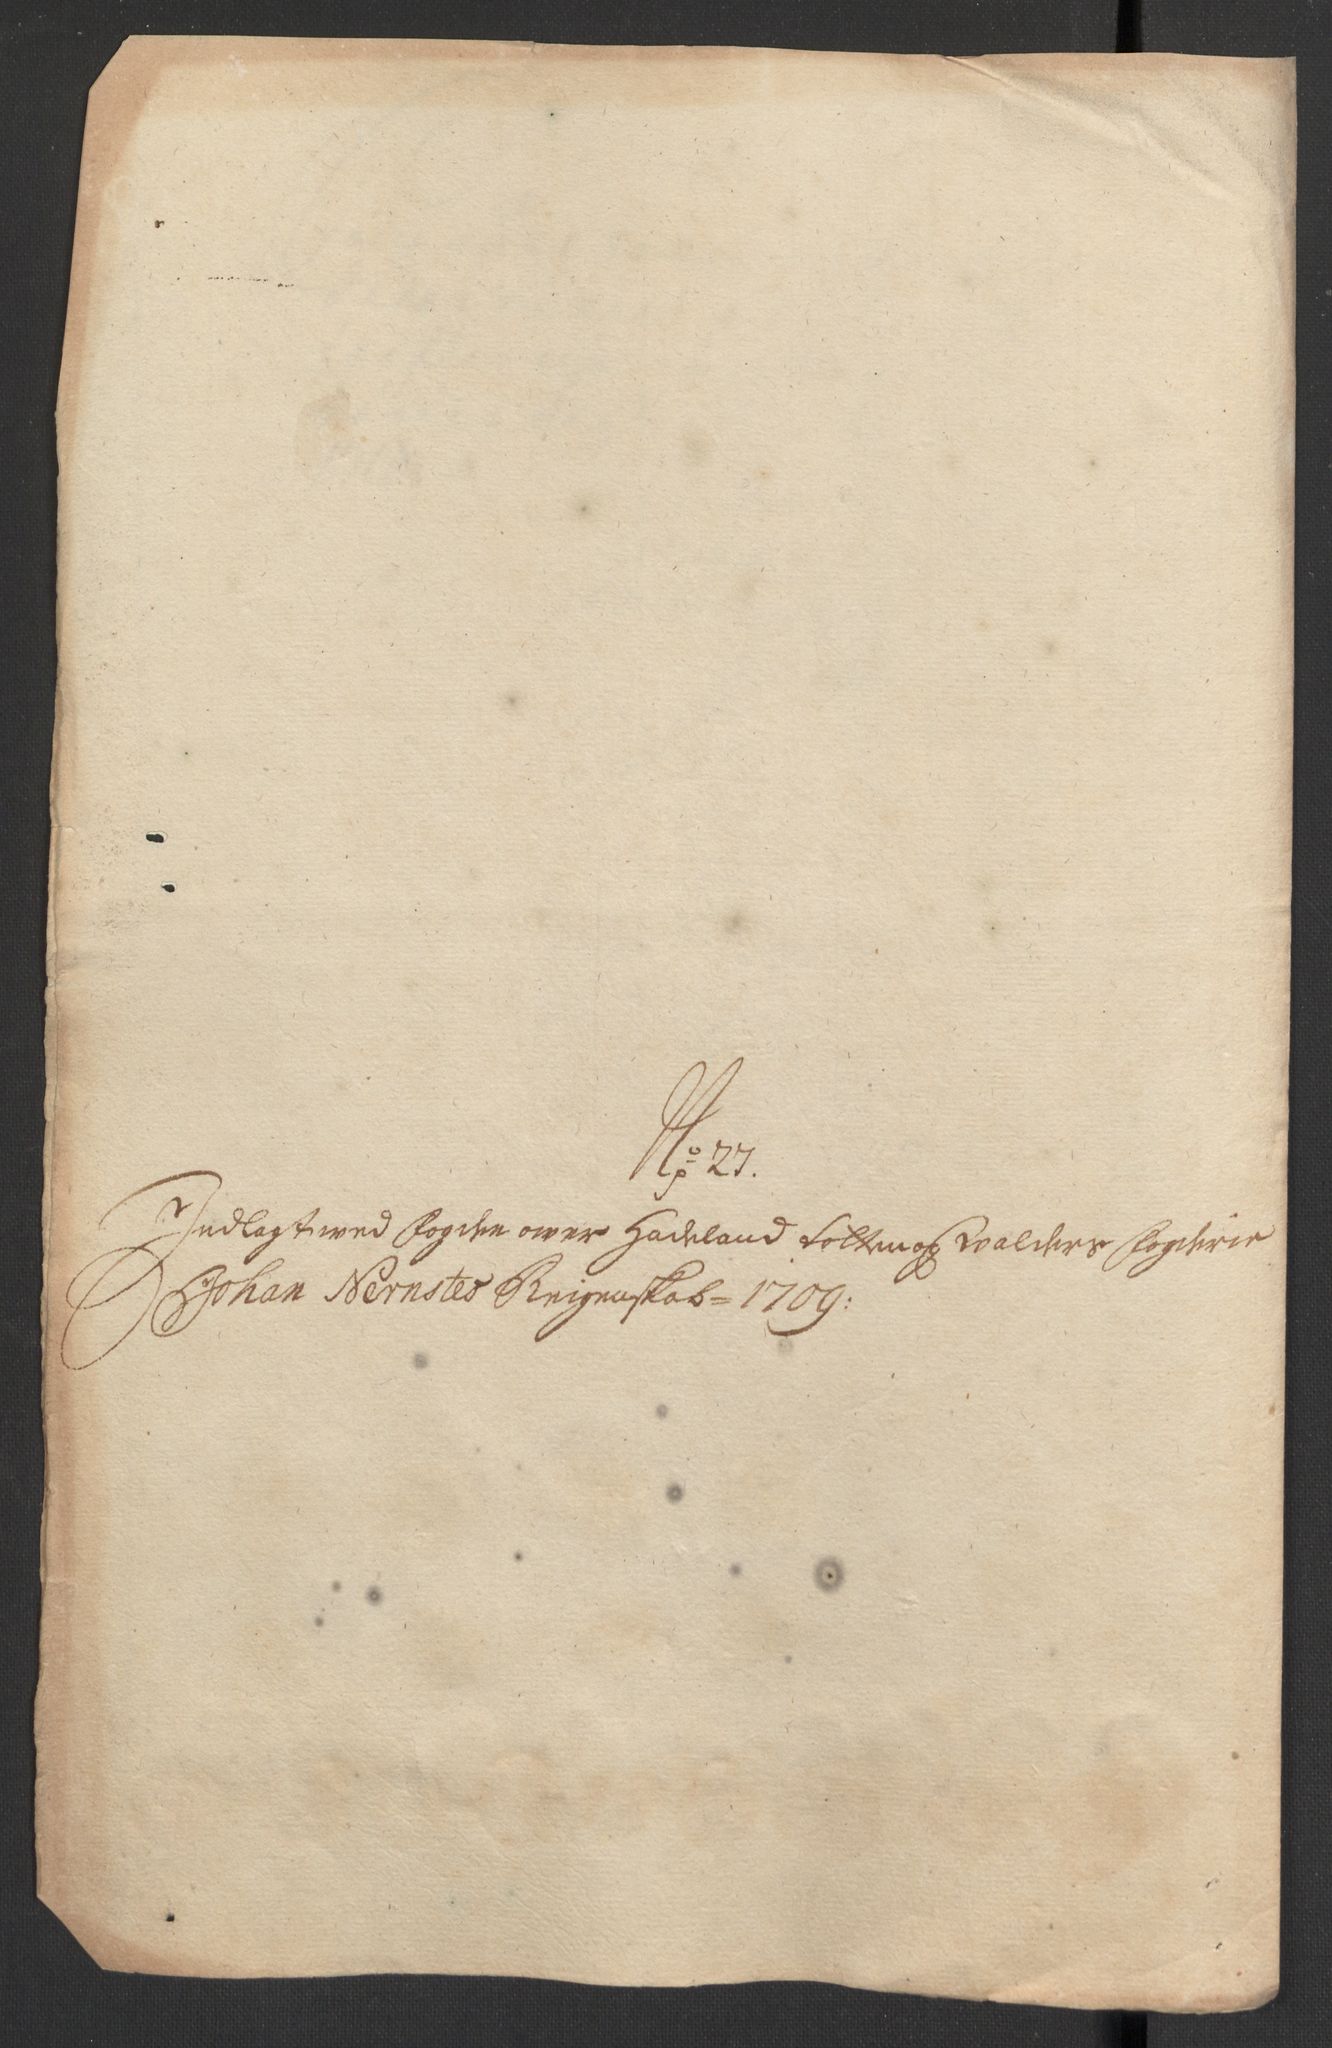 No 27.
Indlagt wed Fogden ower Hadeland Totten og Walders Fogderie
Johan Nernstes Reigenskab = 1709: